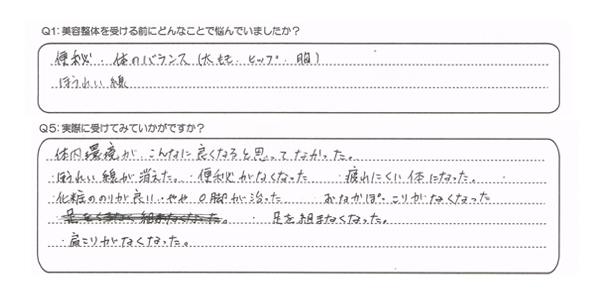 Q1:美容整体を受ける前にどんなことで悩んでいましたか?
便秘・体のバランス(太もも・ヒップ・腹)
ほうれい線
Q5:実際に受けてみていかがですか?
体内環境が、こんなに良くなると思ってなかった。
・ほうれい線が消えた。・便秘がなくなった ・疲れにくい体になった。
・化粧ののりが良い・やや O脚が治った おなかぽっこりがなくなった
・足を組まなくなった。
・肩こりがなくなった。